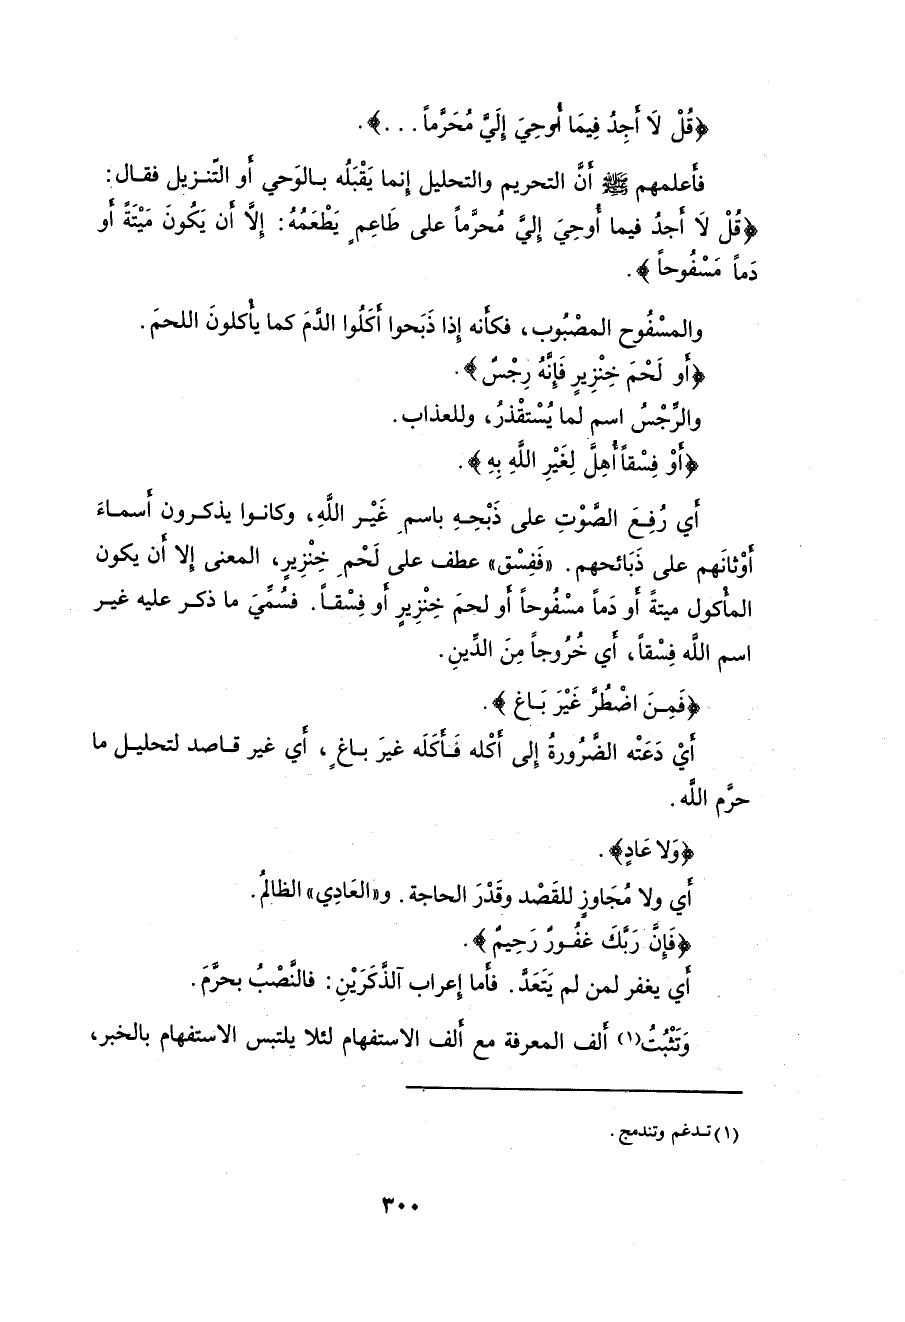 ﴿قُلْ لَا أَجِدُ فِيمَا أُوحِيَ إِلَيَّ مُحَرَّماً . . .﴾.
فأعلمهم ﷺ أَنَّ التحريم والتحليل إنما يَقْبَلُه بالوَحي أو التّنزيل فقال:
﴿قُلْ لَا أَجدُ فيما أُوحِيَ إِلَيَّ مُحرَّماً على طَاعِمٍ يَطْعَمُهُ: إلَّا أَن يَكُونَ مَيْتَةً أَو
دَماً مَسْفُوحاً﴾.
والمسْفُوح المصْبُوب، فكأنه إذا ذَبَحوا أَكَلُوا الدَّمَ كما يأكلونَ اللحمَ.
﴿أَو لَحْمَ خِنْزِيرٍ فَإِنَّهُ رِجْسٌ﴾.
والرِّجْسُ اسم لما يُسْتقْذرُ، وللعذاب.
﴿أَوْ فِسْقاً أُهِلَّ لِغَيْرِ اللَّهِ بِهِ﴾.
أَي رُفِعَ الصَّوْتِ على ذَبْحِهِ باسمِ غَيْر اللَّهِ، وكانوا يذكرون أَسماءَ
أَوْثانَهم على ذَبائحهم. «فَفِسْق» عطف على لَحْمِ خِنْزِيرٍ، المعنى إلا أَن يكون
المأكول ميتةً أَو دَماً مسْفُوحاً أَو لحمَ خِنْزِيرٍ أَو فِسْقاً. فسُمِّيَ ما ذكر عليه غير
اسم اللَّه فِسْقاً، أَي خُرُوجاً مِنَ الدِّينِ.
﴿فَمِنَ اضْطُرَّ غَيْرَ بَاغٍ﴾.
أَيْ دَعَتْه الضَّرُورةُ إلى أَكْله فَأَكَلَه غيرَ باغٍ، أَي غير قاصد لتحليل ما
حرَّم اللَّه.
﴿وَلا عَادٍ﴾.
أَي ولا مُجَاوزٍ للقَصْد وقَدْرَ الحاجة. و«العَادِي» الظالمُ.
﴿فَإِنَّ رَبَّكَ غفُورٌ رَحِيمٌ﴾.
أَي يغفر لمن لم يَتَعَدَّ. فأما إعراب آلذَّكَرَيْنِ: فالنَّصْبُ بحرَّمَ.
وَتَثْبُتُ(١) أَلف المعرفة مع أَلف الاستفهام لئلا يلتبس الاستفهام بالخبر،
(١) تدغم وتندمج.
٣٠٠